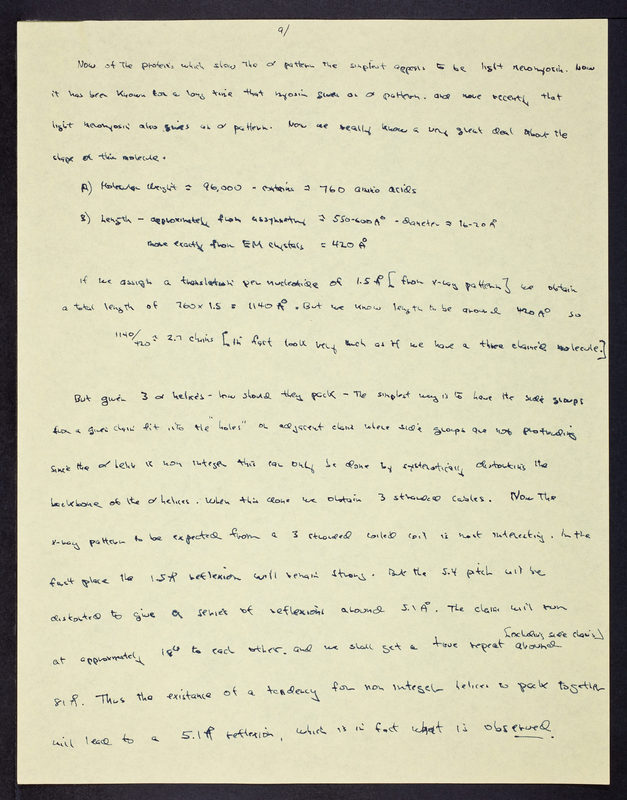 9/
Now of the proteins which show the α pattern the simplest appears to be light meromyosin. Now
it has been known for a long time that myosin gives an α pattern. and more recently that
light meromyosin also gives an α pattern. Now we really know a very great deal about the
shape of this molecule.
A) Molecular Weight = 96,000 - contains = 760 amino acids
B) Length - approximately from assymetry = 550-600 A° - diameter = 16-20 A°
more exactly from EM crystals = 420 A°
If we assign a translation per nucleotide of 1.5 A° [from x-ray pattern] we obtain
a total length of 760 x 1.5 = 1140 A°. But we know length to be around 420 A° so
1140/420 = 2.7 chains [In fact looks very much as if we have a three chained molecule.]
But given 3 α helices - how should they pack - The simplest way is to have the side groups
from a given chain fit into the "holes" on adjacent chain where side groups are not protruding
since the α helix is non integer this can only be done by systematically distorting the
backbone of the α helices. When this done we obtain 3 stranded cables. Now the
x-ray pattern to be expected from a 3 stranded coiled coil is most interesting. In the
first place the 1.5 A° reflexion will remain strong. But the 5.4 pitch will be
distorted to give a series of reflexions around 5.1 A°. The chains will run
at approximately 18° to each other. and we shall get a true repeat [excluding side chains] around
81 A°. Thus the existance of a tendency for non integer helices to pack together
will lead to a 5.1 A° reflexion, which is in fact what is observed.